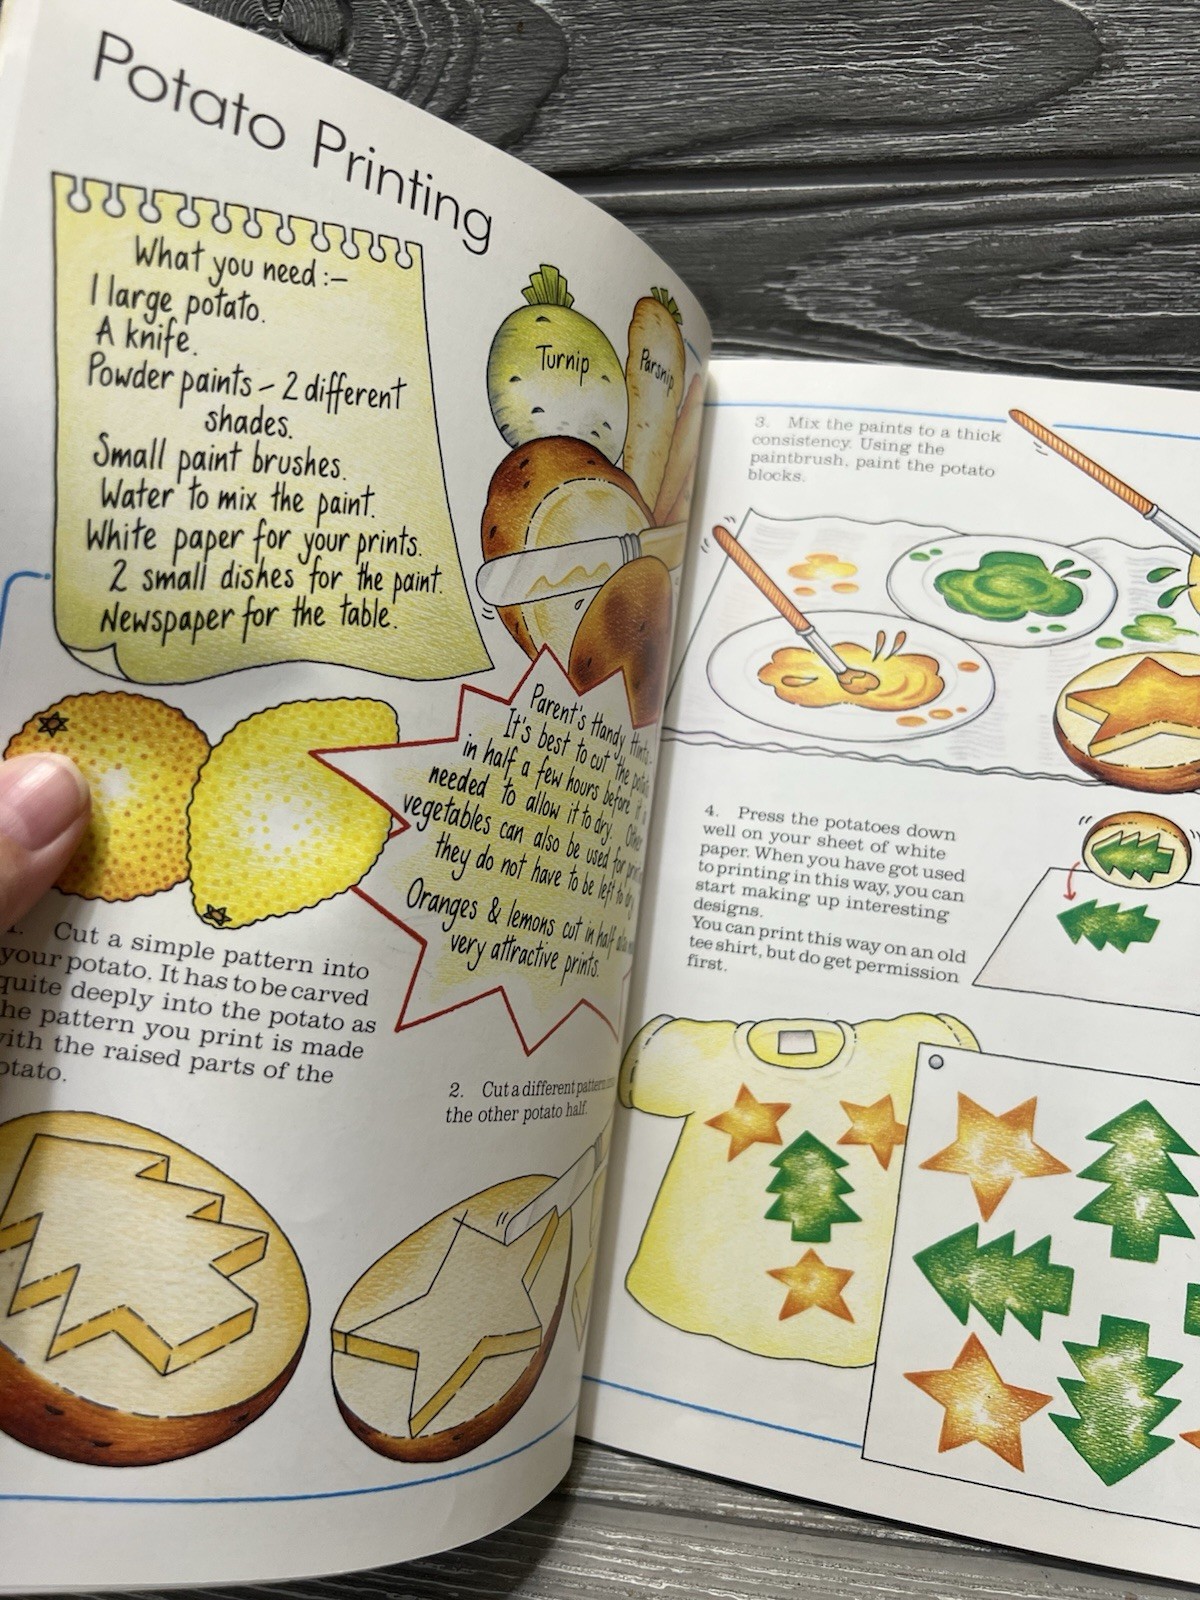 Potato Printing
What you need :–
1 large potato.
A knife.
Powder paints – 2 different
shades.
Small paint brushes.
Water to mix the paint.
White paper for your prints.
2 small dishes for the paint.
Newspaper for the table.
Turnip
Parsnip
Parent's Handy Hints
It's best to cut the
in half a few hours before it
needed to allow it to dry. Other
vegetables can also be used for
they do not have to be left to
Oranges & lemons cut in half
very attractive prints.
1. Cut a simple pattern into
your potato. It has to be carved
quite deeply into the potato as
the pattern you print is made
with the raised parts of the
potato.
2. Cut a different pattern
the other potato half.
3. Mix the paints to a thick
consistency. Using the
paintbrush, paint the potato
blocks.
4. Press the potatoes down
well on your sheet of white
paper. When you have got used
to printing in this way, you can
start making up interesting
designs.
You can print this way on an old
tee shirt, but do get permission
first.